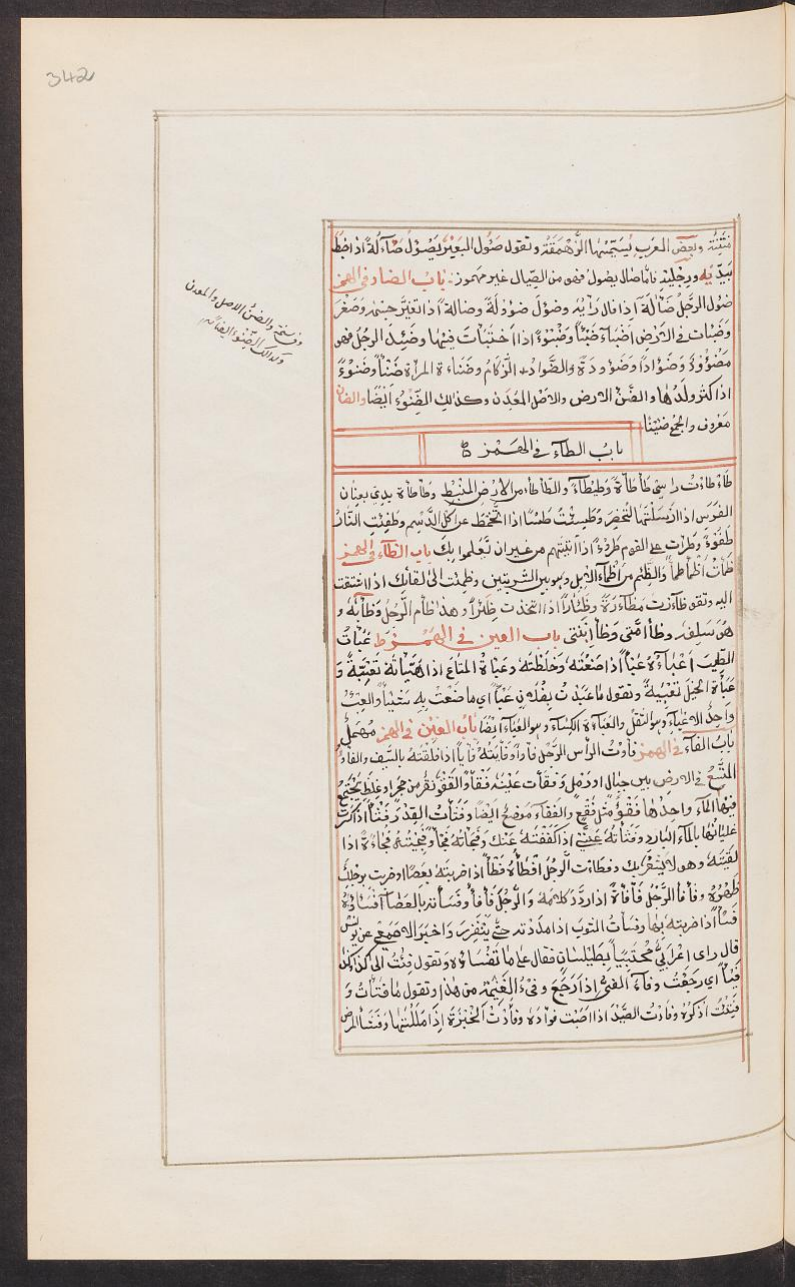 342
منتنة وبعض العرب يسميها الزهمقة وتقول صؤل البعير يصؤل صآلة اذا خبط
بيديه ورجليه فاما صال يصول فهو من الصيال غير مهموز باب الضاد في الهمز
ضؤل الرجل ضآلة اذا فال رأيه وضؤل ضؤولة وضالة اذا تغير جسمه وصغر
وضبأت في الارض اضبأ ضبئا وضبوءا اذا اختبأت فيها وضئد الرجل فهو
مضؤود وضؤادا وضؤودة والضؤاد الزكام وضناءة المرأة ضنأ وضنوءا
اذا كثر ولدها والضن الارض والاصل المعدن وكذلك الضنوء ايضا والضان
معروف والجمع ضئينا
وفي نسخة والضن الاصل والمعدن
وكذلك الضنو ايضا
باب الطاء في الهمز
طأطأت رأسي طأطأة وطيطاء والطأطاء من الارض المنهبط وطأطأة يدي بعنان
الفرس اذا ارسلتها لتحضر وطسئت طسئا اذا اتخمت عن اكل الدسم وطفئت النار
طفوءا وطرأت على القوم طروءا اذا اتيتهم من غير ان تعلموا بك باب الظاء في الهمز
ظمأت اظمأ ظمأ والظمء من اظماء الابل وهو بين الشربتين وظمئت الى لقائك اذا اشتقت
اليه وتقو ظاءرت مظاءرة وظئارا اذا اتخذت ظئرا وهذا ظأم الرجل وظأبه و
هو سلفه وظأامني وظأابني باب العين في الهمز ط عبأت
الطيب اعبأه عبأ اذا صنعته وخلطته وعبأة المتاع اذا هيأته تعبية و
عبأة الخيل تعبية وتقول ما عبدت بفلان عبأ اي ما صنعت به شيئا والعبء
واحد الاعباء وهو الثقل والعباءة الكساء وهو العباء ايضا باب الغين في الهمز مهمل
باب الفاء في الهمز فأوت الرأس الرجل فأوا وفأيته فأيا اذا فلقته بالسيف والفأو
المتسع في الارض بين جبال او رمل وفقأت عينه فقأ والفقؤ نقر من حجر او غلظ يجتمع
فيها الماء واحدها فقؤ مثل فقع والفقاء موضع ايضا وفثأت القدر فثأ اذا كسرت
غليانها بالماء البارد وفثأته عني اذا كففته عنك وفجأته فجأ وفجئته فجاءة اذا
لقيته وهو لا يشعر بك وفطأت الرجل افطأه فطأ اذا ضربته بعصا او ضربت بوظك
ظهره وفأفأ الرجل فأفأة اذا ردد كلامه والرجل فأفأ وفسأته بالعصا افسأه
فسأ اذا ضربته بها وفسأت الثوب اذا مددته حتى يتفزر واخبر الاصمعي عن يونس
قال راى اعرابي محتبيا بطيلسان فقال علاما تفسأه وتقول فئت الى كذا وكذا
فيئا اي رجعت وفاء الفيء اذا رجع وفيء الغنيمة من هذا وتقول ما فتأت و
فتئت اذكره وفأدت الصيد اذا اصبت فؤاده وفأدت الخبزة اذا مللتها وفشأ المرض